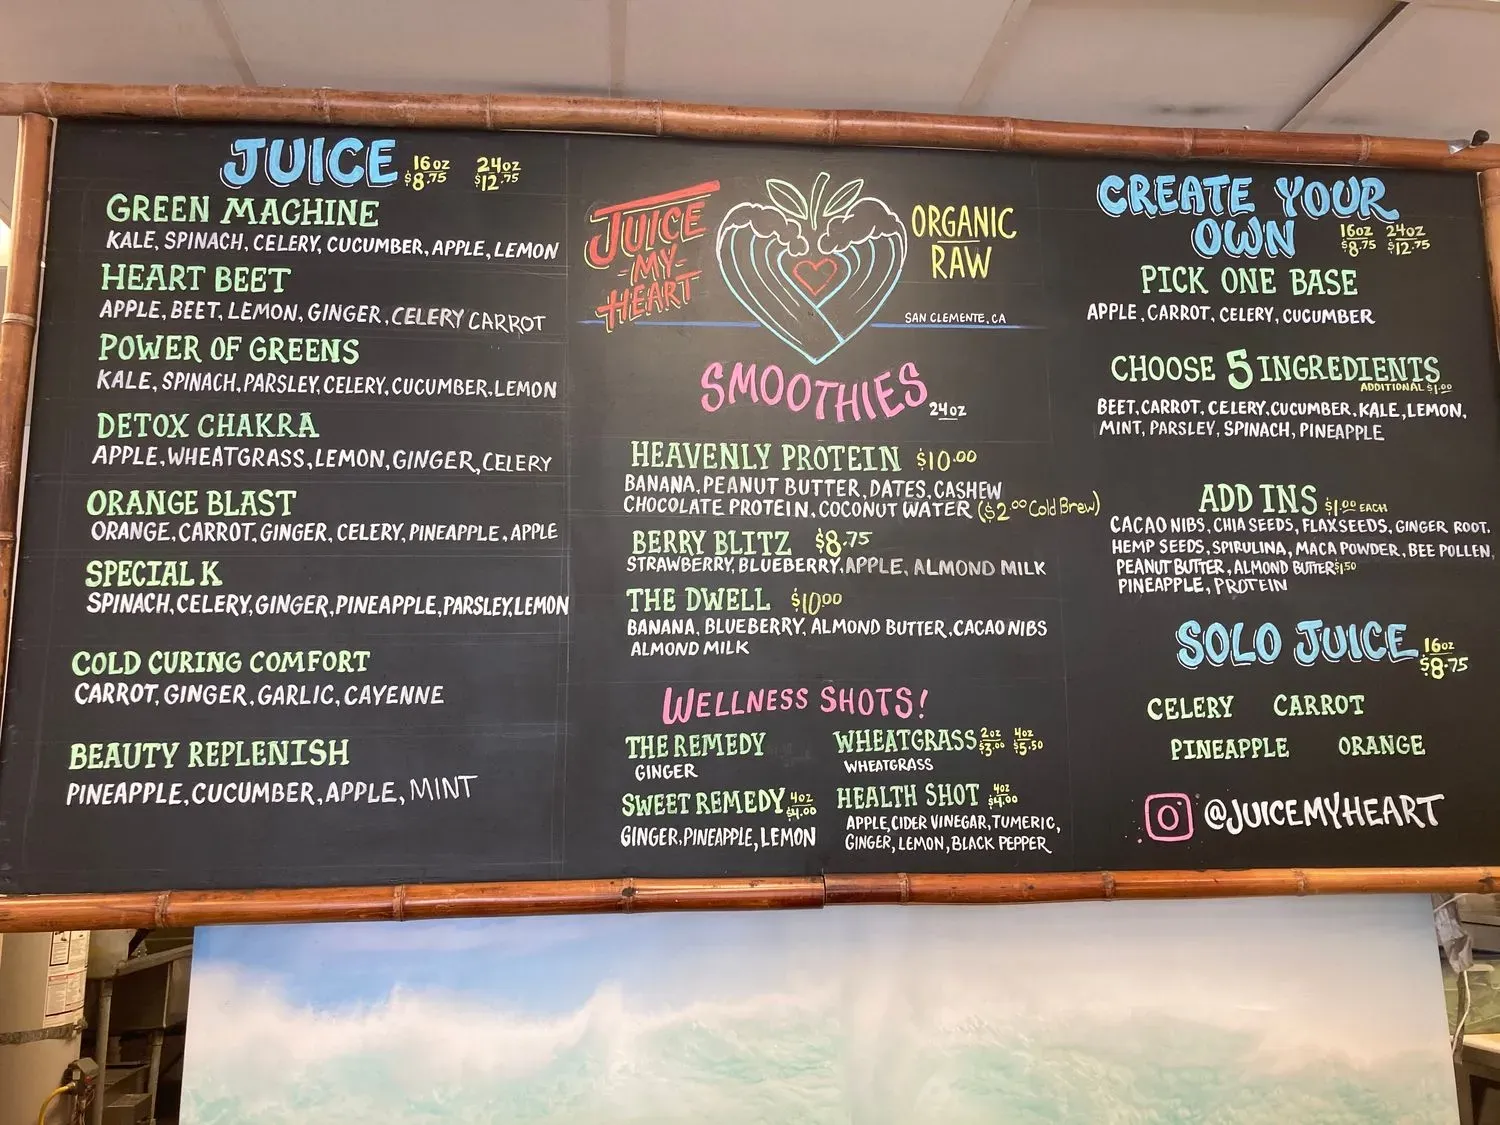 JUICE 16oz $8.75 24oz $12.75
GREEN MACHINE
KALE, SPINACH, CELERY, CUCUMBER, APPLE, LEMON
HEART BEET
APPLE, BEET, LEMON, GINGER, CELERY CARROT
POWER OF GREENS
KALE, SPINACH, PARSLEY, CELERY, CUCUMBER, LEMON
DETOX CHAKRA
APPLE, WHEATGRASS, LEMON, GINGER, CELERY
ORANGE BLAST
ORANGE, CARROT, GINGER, CELERY, PINEAPPLE, APPLE
SPECIAL K
SPINACH, CELERY, GINGER, PINEAPPLE, PARSLEY, LEMON
COLD CURING COMFORT
CARROT, GINGER, GARLIC, CAYENNE
BEAUTY REPLENISH
PINEAPPLE, CUCUMBER, APPLE, MINT
JUICE
-MY-
HEART
ORGANIC
RAW
SAN CLEMENTE, CA
SMOOTHIES 24oz
HEAVENLY PROTEIN $10.00
BANANA, PEANUT BUTTER, DATES, CASHEW
CHOCOLATE PROTEIN, COCONUT WATER ($2.00 Cold Brew)
BERRY BLITZ $8.75
STRAWBERRY, BLUEBERRY, APPLE, ALMOND MILK
THE DWELL $10.00
BANANA, BLUEBERRY, ALMOND BUTTER, CACAO NIBS
ALMOND MILK
WELLNESS SHOTS!
THE REMEDY
GINGER
WHEATGRASS 2oz $3.00 4oz $5.50
WHEATGRASS
SWEET REMEDY 4oz $4.00
GINGER, PINEAPPLE, LEMON
HEALTH SHOT 4oz $4.00
APPLE, CIDER VINEGAR, TUMERIC,
GINGER, LEMON, BLACK PEPPER
CREATE YOUR
OWN 16oz $8.75 24oz $12.75
PICK ONE BASE
APPLE, CARROT, CELERY, CUCUMBER
CHOOSE 5 INGREDIENTS
ADDITIONAL $1.00
BEET, CARROT, CELERY, CUCUMBER, KALE, LEMON,
MINT, PARSLEY, SPINACH, PINEAPPLE
ADD INS $1.00 EACH
CACAO NIBS, CHIA SEEDS, FLAXSEEDS, GINGER ROOT,
HEMP SEEDS, SPIRULINA, MACA POWDER, BEE POLLEN,
PEANUT BUTTER, ALMOND BUTTER $1.50
PINEAPPLE, PROTEIN
SOLO JUICE 16oz $8.75
CELERY CARROT
PINEAPPLE ORANGE
@JUICEMYHEART